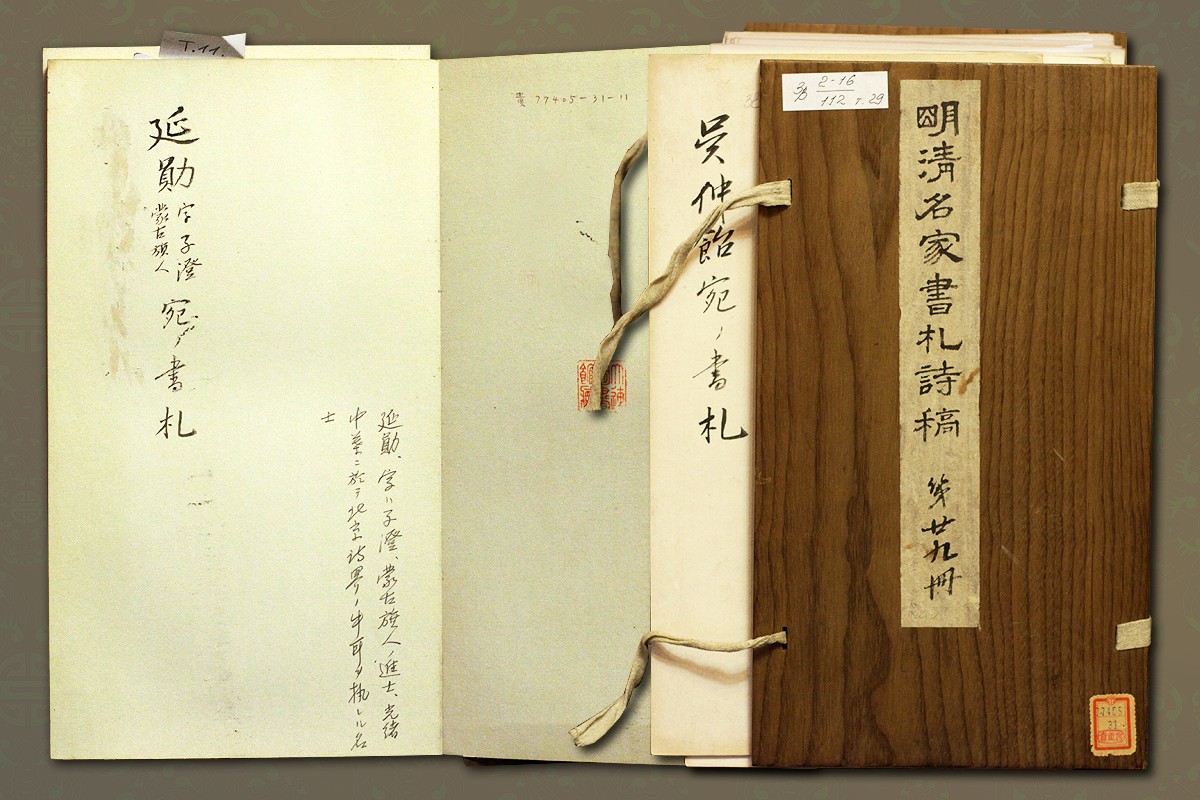 T.11.
延勛 字子澄 蒙古旗人 宛ノ書札
延勛、字ハ子澄、蒙古旗人進士、光緒
中葉ニ於テ北京詩界ノ牛耳ヲ執レル名
士
貴 77405-31-11
吳仲飴宛ノ書札
明清名家書札詩稿 第廿九冊
2-16
112 т.29
31